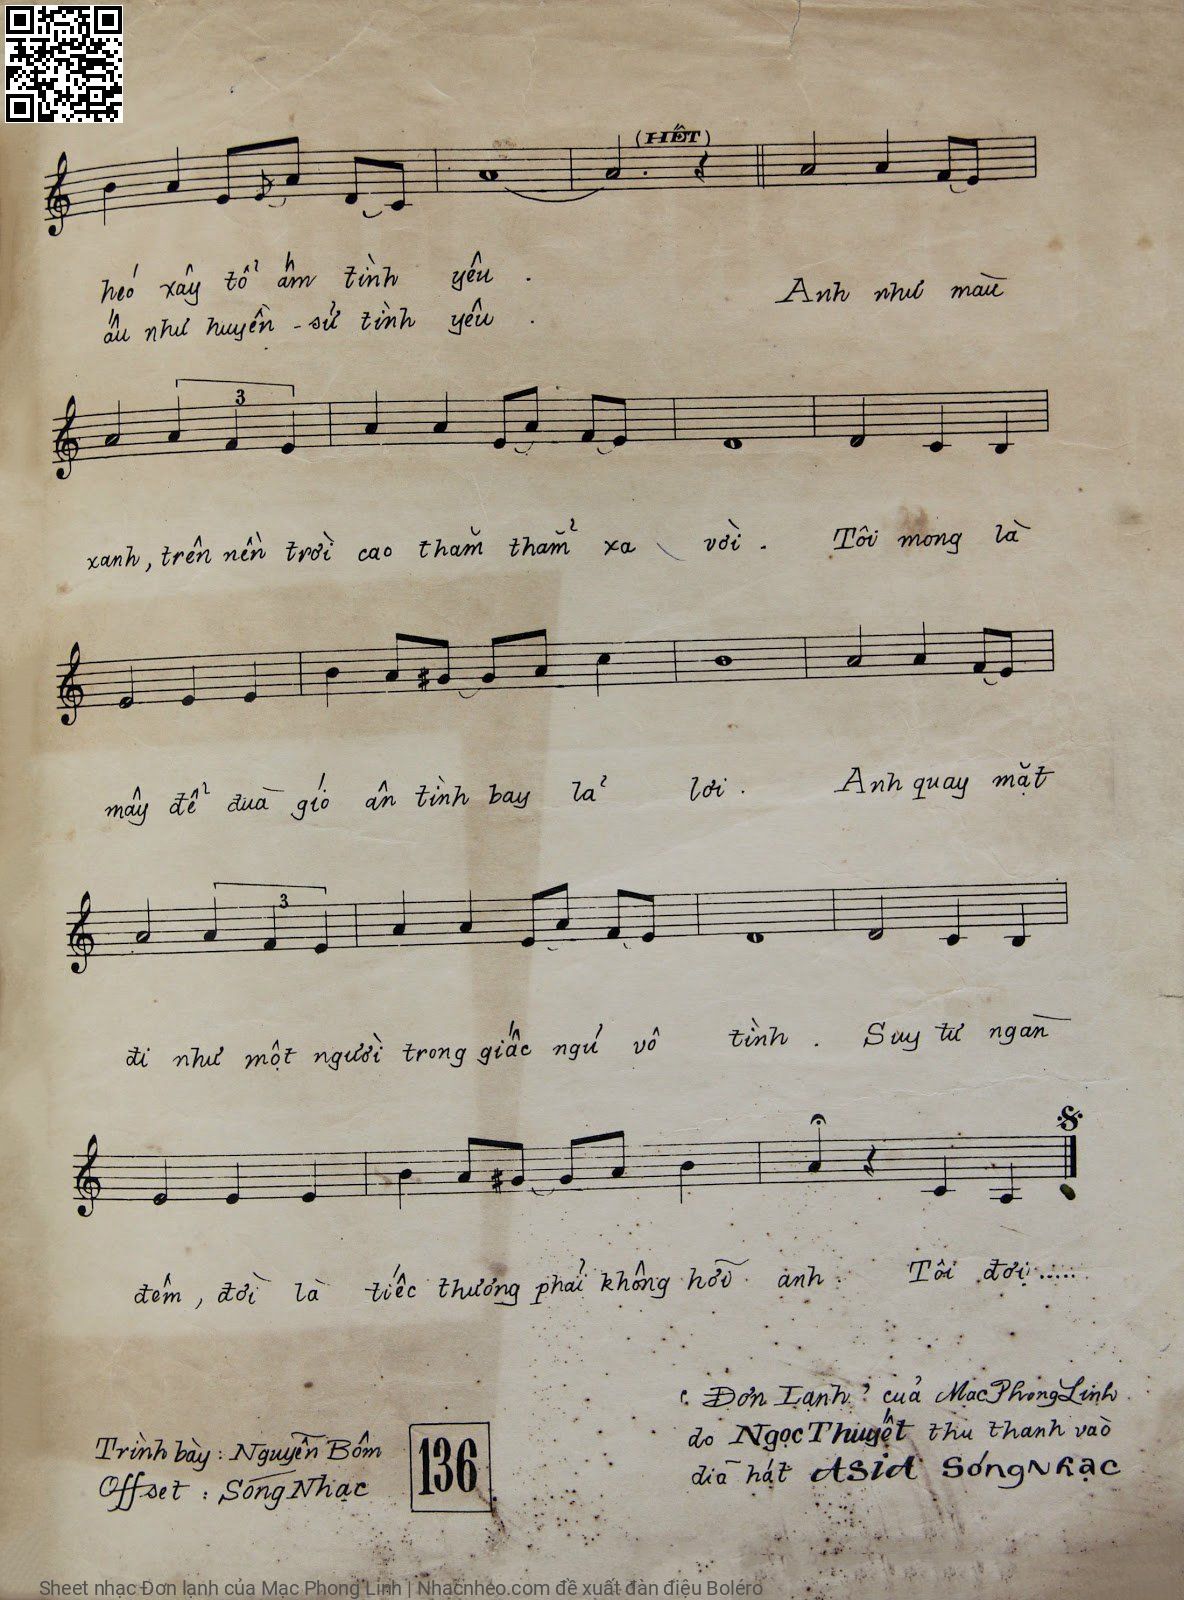 (HẾT)
héo xây tổ ấm tình yêu .
Anh như màu
ấu như huyền - sử tình yêu .
3
xanh, trên nền trời cao thăm thẳm xa vời . Tôi mong là
mây để đùa gió ân tình bay lả lơi . Anh quay mặt
3
đi như một người trong giấc ngủ vô tình . Suy tư ngàn
đêm , đời là tiếc thương phải không hỡi anh . Tôi đợi .....
Trình bày : Nguyễn Bôm
Offset : Sóng Nhạc
136
" Đơn Lạnh " của Mạc Phong Linh
do Ngọc Thuyết thu thanh vào
dĩa hát ASIA Sóng Nhạc
Sheet nhạc Đơn lạnh của Mạc Phong Linh | Nhacnheo.com đề xuất đàn điệu Boléro